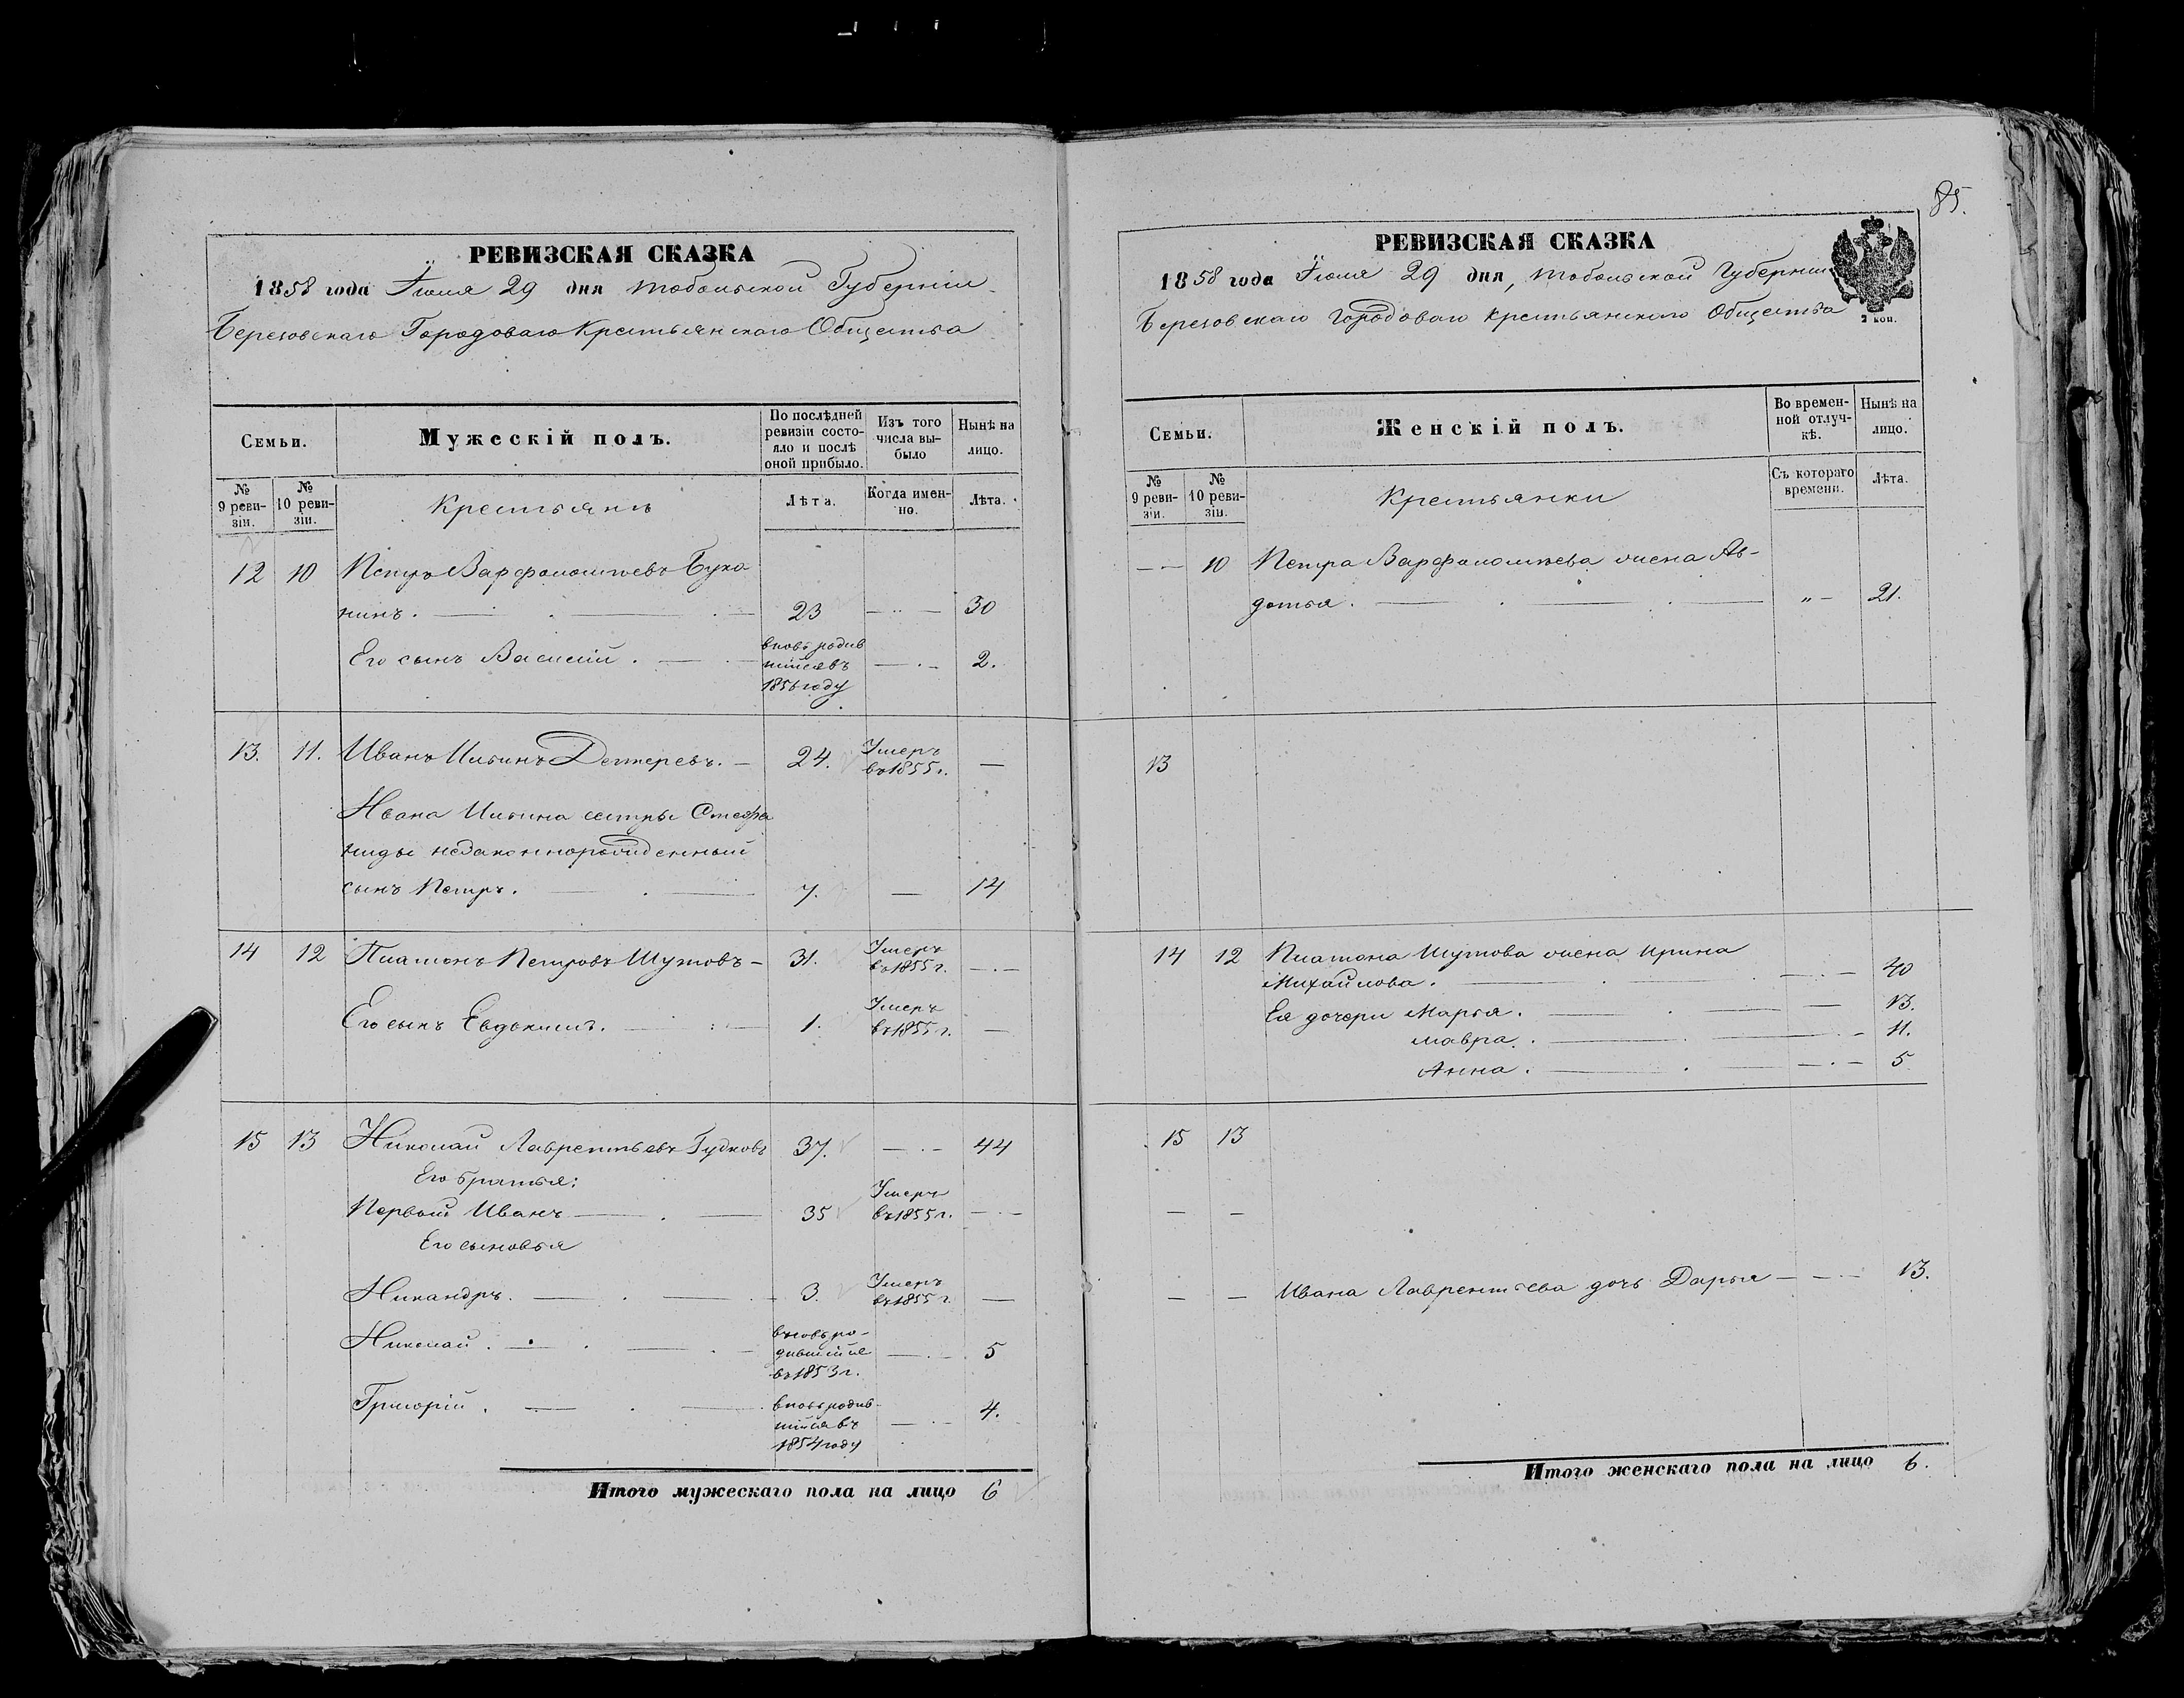 РЕВИЗСКАЯ СКАЗКА
1858 года Іюля 29 дня Тобольской Губерніи
Березовскаго Городоваго Крестьянскаго Общества
Семьи.
Мужескій полъ.
По послѣдней ревизіи состо-
яло и послѣ оной прибыло.
Изъ того числа вы-
было
Ныне на лицо.
№ 9 реви-
зіи.
№ 10 реви-
зіи.
Крестьянъ
Лѣта.
Когда имен-
но.
Лѣта.
12 10 Петръ Варфоломѣевъ Бука
нинъ. 23 30
Его сынъ Василій. 2.
вновь родив
шійся въ
1856 году
13. 11. Иванъ Ильинъ Дегтеревъ. 24. —
Умеръ
въ 1855 г.
Ивана Ильина сестры Стефа
ниды незаконнорожденный
сынъ Петръ. 7. — 14
14 12 Платонъ Петровъ Шутовъ 31.
Умеръ
въ 1855 г.
Его сынъ Евдокимъ. 1. —
Умеръ
въ 1855 г.
15 13 Николай Лаврентьевъ Гудковъ 37. 44
Его братья:
Первой Иванъ 35
Умеръ
въ 1855 г.
Его сыновья
Никандръ. 3. —
Умеръ
въ 1855 г.
Николай. 5
вновь ро-
дившійся
въ 1853 г.
Григорій. 4.
вновь родив-
шійся въ
1854 году
Итого мужескаго пола на лицо 6
85.
РЕВИЗСКАЯ СКАЗКА
1858 года Іюля 29 дня, Тобольской Губерніи
Березовскаго Городоваго Крестьянскаго Общества
2 коп.
Семьи.
Женскій полъ.
Во времен-
ной отлуч-
кѣ.
Нынѣ на лицо.
№ 9 реви-
зіи.
№ 10 реви-
зіи.
Крестьянки
Съ котораго времени.
Лѣта.
— 10 Петра Варфоломѣева жена Ав-
дотья. 21.
13
14 12 Платона Шутова жена Ирина
Михайлова. 40
Ея дочери Марья. 13.
Мавра. 11.
Анна. 5
15 13
— —
— — Ивана Лаврентьева дочь Дарья 13.
Итого женскаго пола на лицо 6.